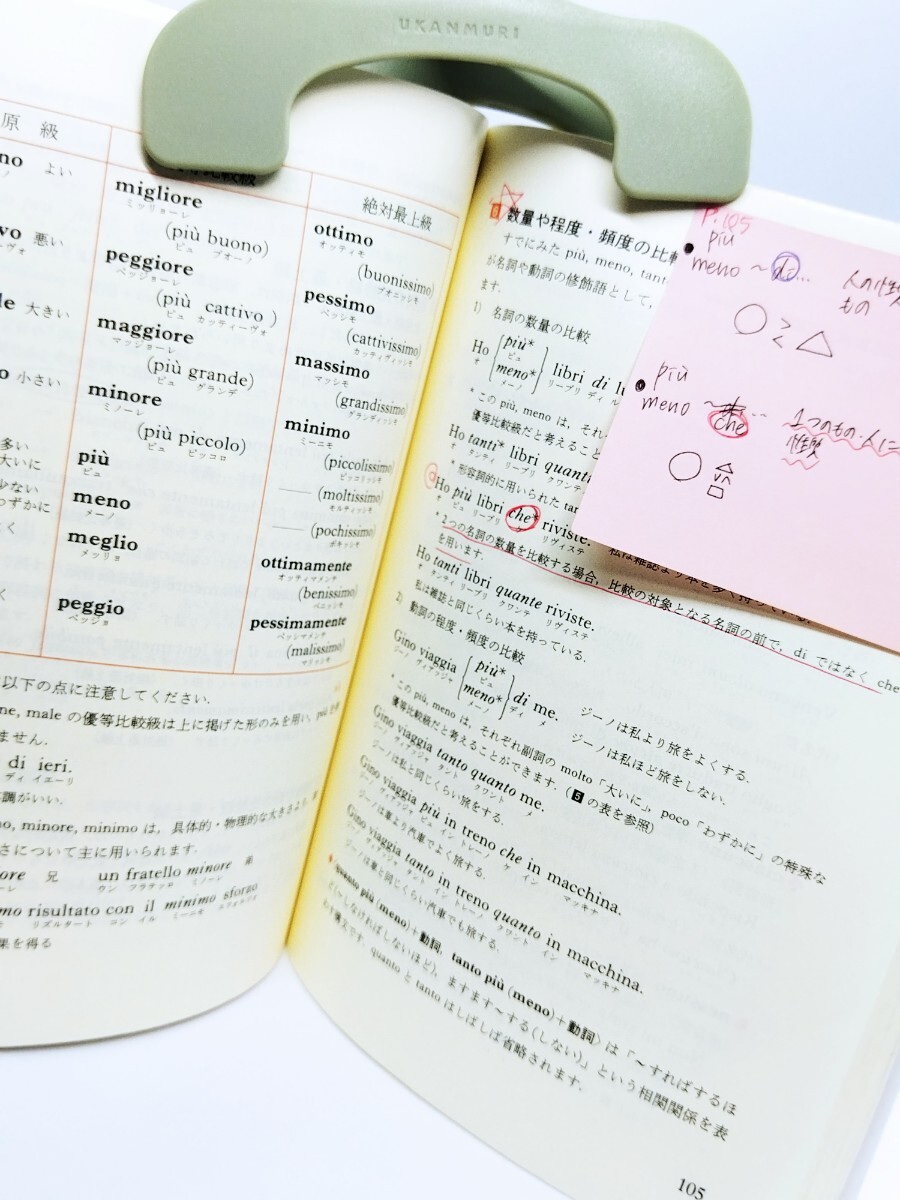 UKANMURI
原級
絶対最上級
no よい
migliore
ミッリョーレ
(più buono)
ピュ ブオーノ
ottimo
オッティモ
(buonissimo)
ブオニッシモ
vo 悪い
peggiore
ペッジョーレ
(più cattivo )
ピュ カッティーヴォ
pessimo
ペッシモ
(cattivissimo)
カッティヴィッシモ
le 大きい
maggiore
マッジョーレ
(più grande)
ピュ グランデ
massimo
マッシモ
(grandissimo)
グランディッシモ
o 小さい
minore
ミノーレ
(più piccolo)
ピュ ピッコロ
minimo
ミーニモ
(piccolissimo)
ピッコリッシモ
多い
大いに
più
ピュ
(moltissimo)
モルティッシモ
少ない
わずかに
meno
メーノ
(pochissimo)
ポキッシモ
く
meglio
メッリョ
ottimamente
オッティマメンテ
(benissimo)
ベニッシモ
く
peggio
ペッジョ
pessimamente
ペッシマメンテ
(malissimo)
マリッシモ
以下の点に注意してください.
ne, male の優等比較級は上に掲げた形のみを用い, più
ません.
di ieri.
ディ イエーリ
調がいい.
no, minore, minimo は, 具体的・物理的な大きさより,
さについて主に用いられます.
ore 兄 un fratello minore 弟
レ ウン フラテッロ ミノーレ
mo risultato con il minimo sforzo
モ リズルタート コン イル ミーニモ スフォルツォ
果を得る
6 数量や程度・頻度の比較
すでにみた più, meno, tant
が名詞や動詞の修飾語として,
ます.
1) 名詞の数量の比較
Ho { più* meno* } libri di l
オ ピュ メーノ リーブリ ディ ル
* この più, meno は, それ
優等比較級だと考えること
Ho tanti* libri quanti
オ タンティ リーブリ クワンテ
* 形容詞的に用いられた tan
Ho più libri che* riviste.
オ ピュ リーブリ ケ リヴィステ
私は雑誌より本を多く持っている.
* 2つの名詞の数量を比較する場合, 比較の対象となる名詞の前で, di ではなく che
を用います.
Ho tanti libri quante riviste.
オ タンティ リーブリ クワンテ リヴィステ
私は雑誌と同じくらい本を持っている.
2) 動詞の程度・頻度の比較
Gino viaggia { più* meno* } di me.
ジーノ ヴィアッジャ ピュ メーノ ディ メ
ジーノは私より旅をよくする.
ジーノは私ほど旅をしない.
* この più, meno は, それぞれ副詞の molto「大いに」, poco「わずかに」の特殊な
優等比較級だと考えることができます. (5 の表を参照)
Gino viaggia tanto quanto me.
ジーノ ヴィアッジャ タント クワント メ
ジーノは私と同じくらい旅をする.
Gino viaggia più in treno che in macchina.
ジーノ ヴィアッジャ ピュ イン トレーノ ケ イン マッキナ
ジーノは車より汽車でよく旅する.
Gino viaggia tanto in treno quanto in macchina.
ジーノ ヴィアッジャ タント イン トレーノ クワント イン マッキナ
ジーノは車と同じくらい汽車でも旅する.
〈quanto più (meno)+動詞, tanto più (meno)+動詞〉は「~すればするほ
ど(~しなければしないほど), ますます~する(しない)」という相関関係を表
わす構文です. quanto と tanto はしばしば省略されます.
105
P.105
più
meno ~ di…
人の性質
もの
più
meno ~ …
che
1つのもの・人に
性質